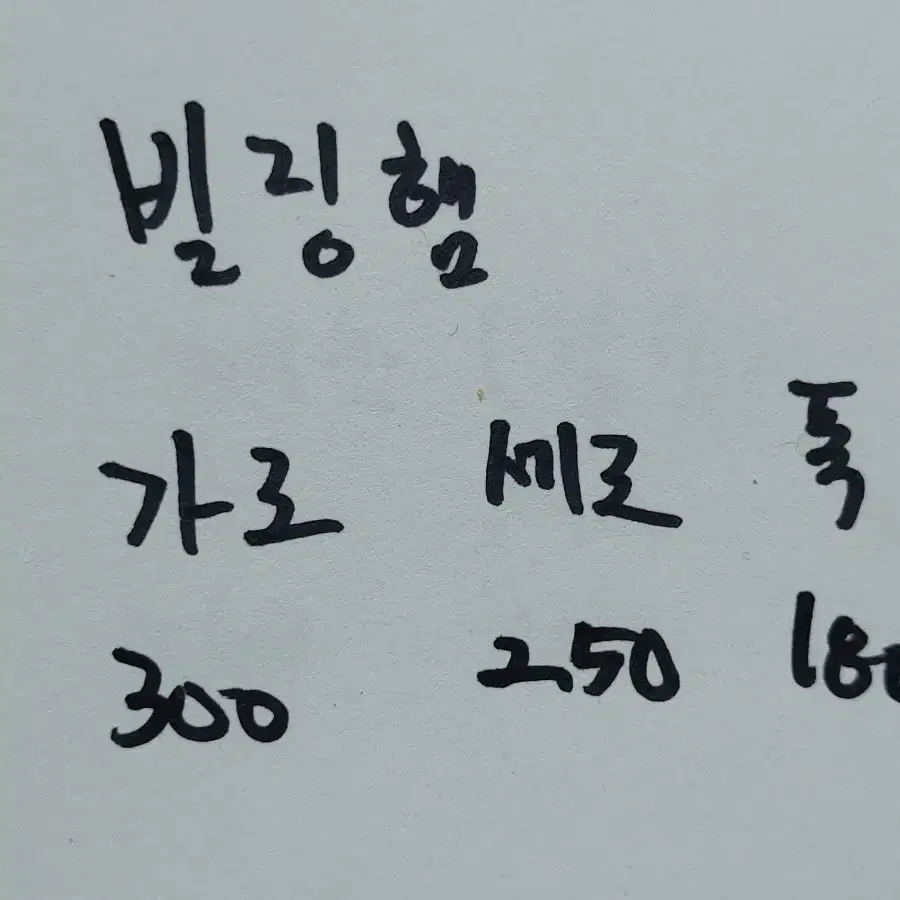 빌링햄
가로 세로 폭
300 250 180